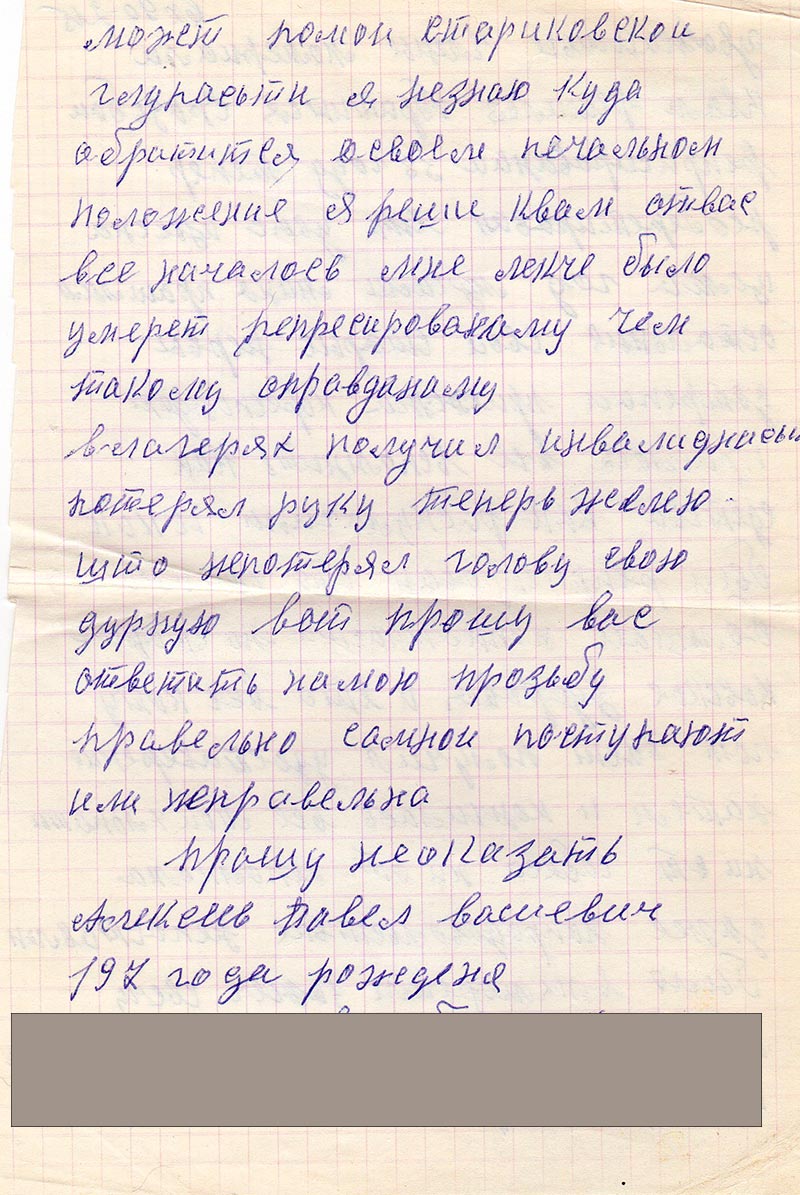 может помои стариковской
глупасьти я незнаю куда
обратится освоем печальном
положение я реши квам отвас
все началоев мне легче было
умерет репресированаму чем
такому оправданаму
в лагерях получил инвалиднасьт
потерял руку теперь жалею
што непотерял голову свою
дурную вот прошу вас
ответить намою прозьбу
правельно самной поступают
или неправельна
прошу неоказать
Павел васиевич
197 года рожденя